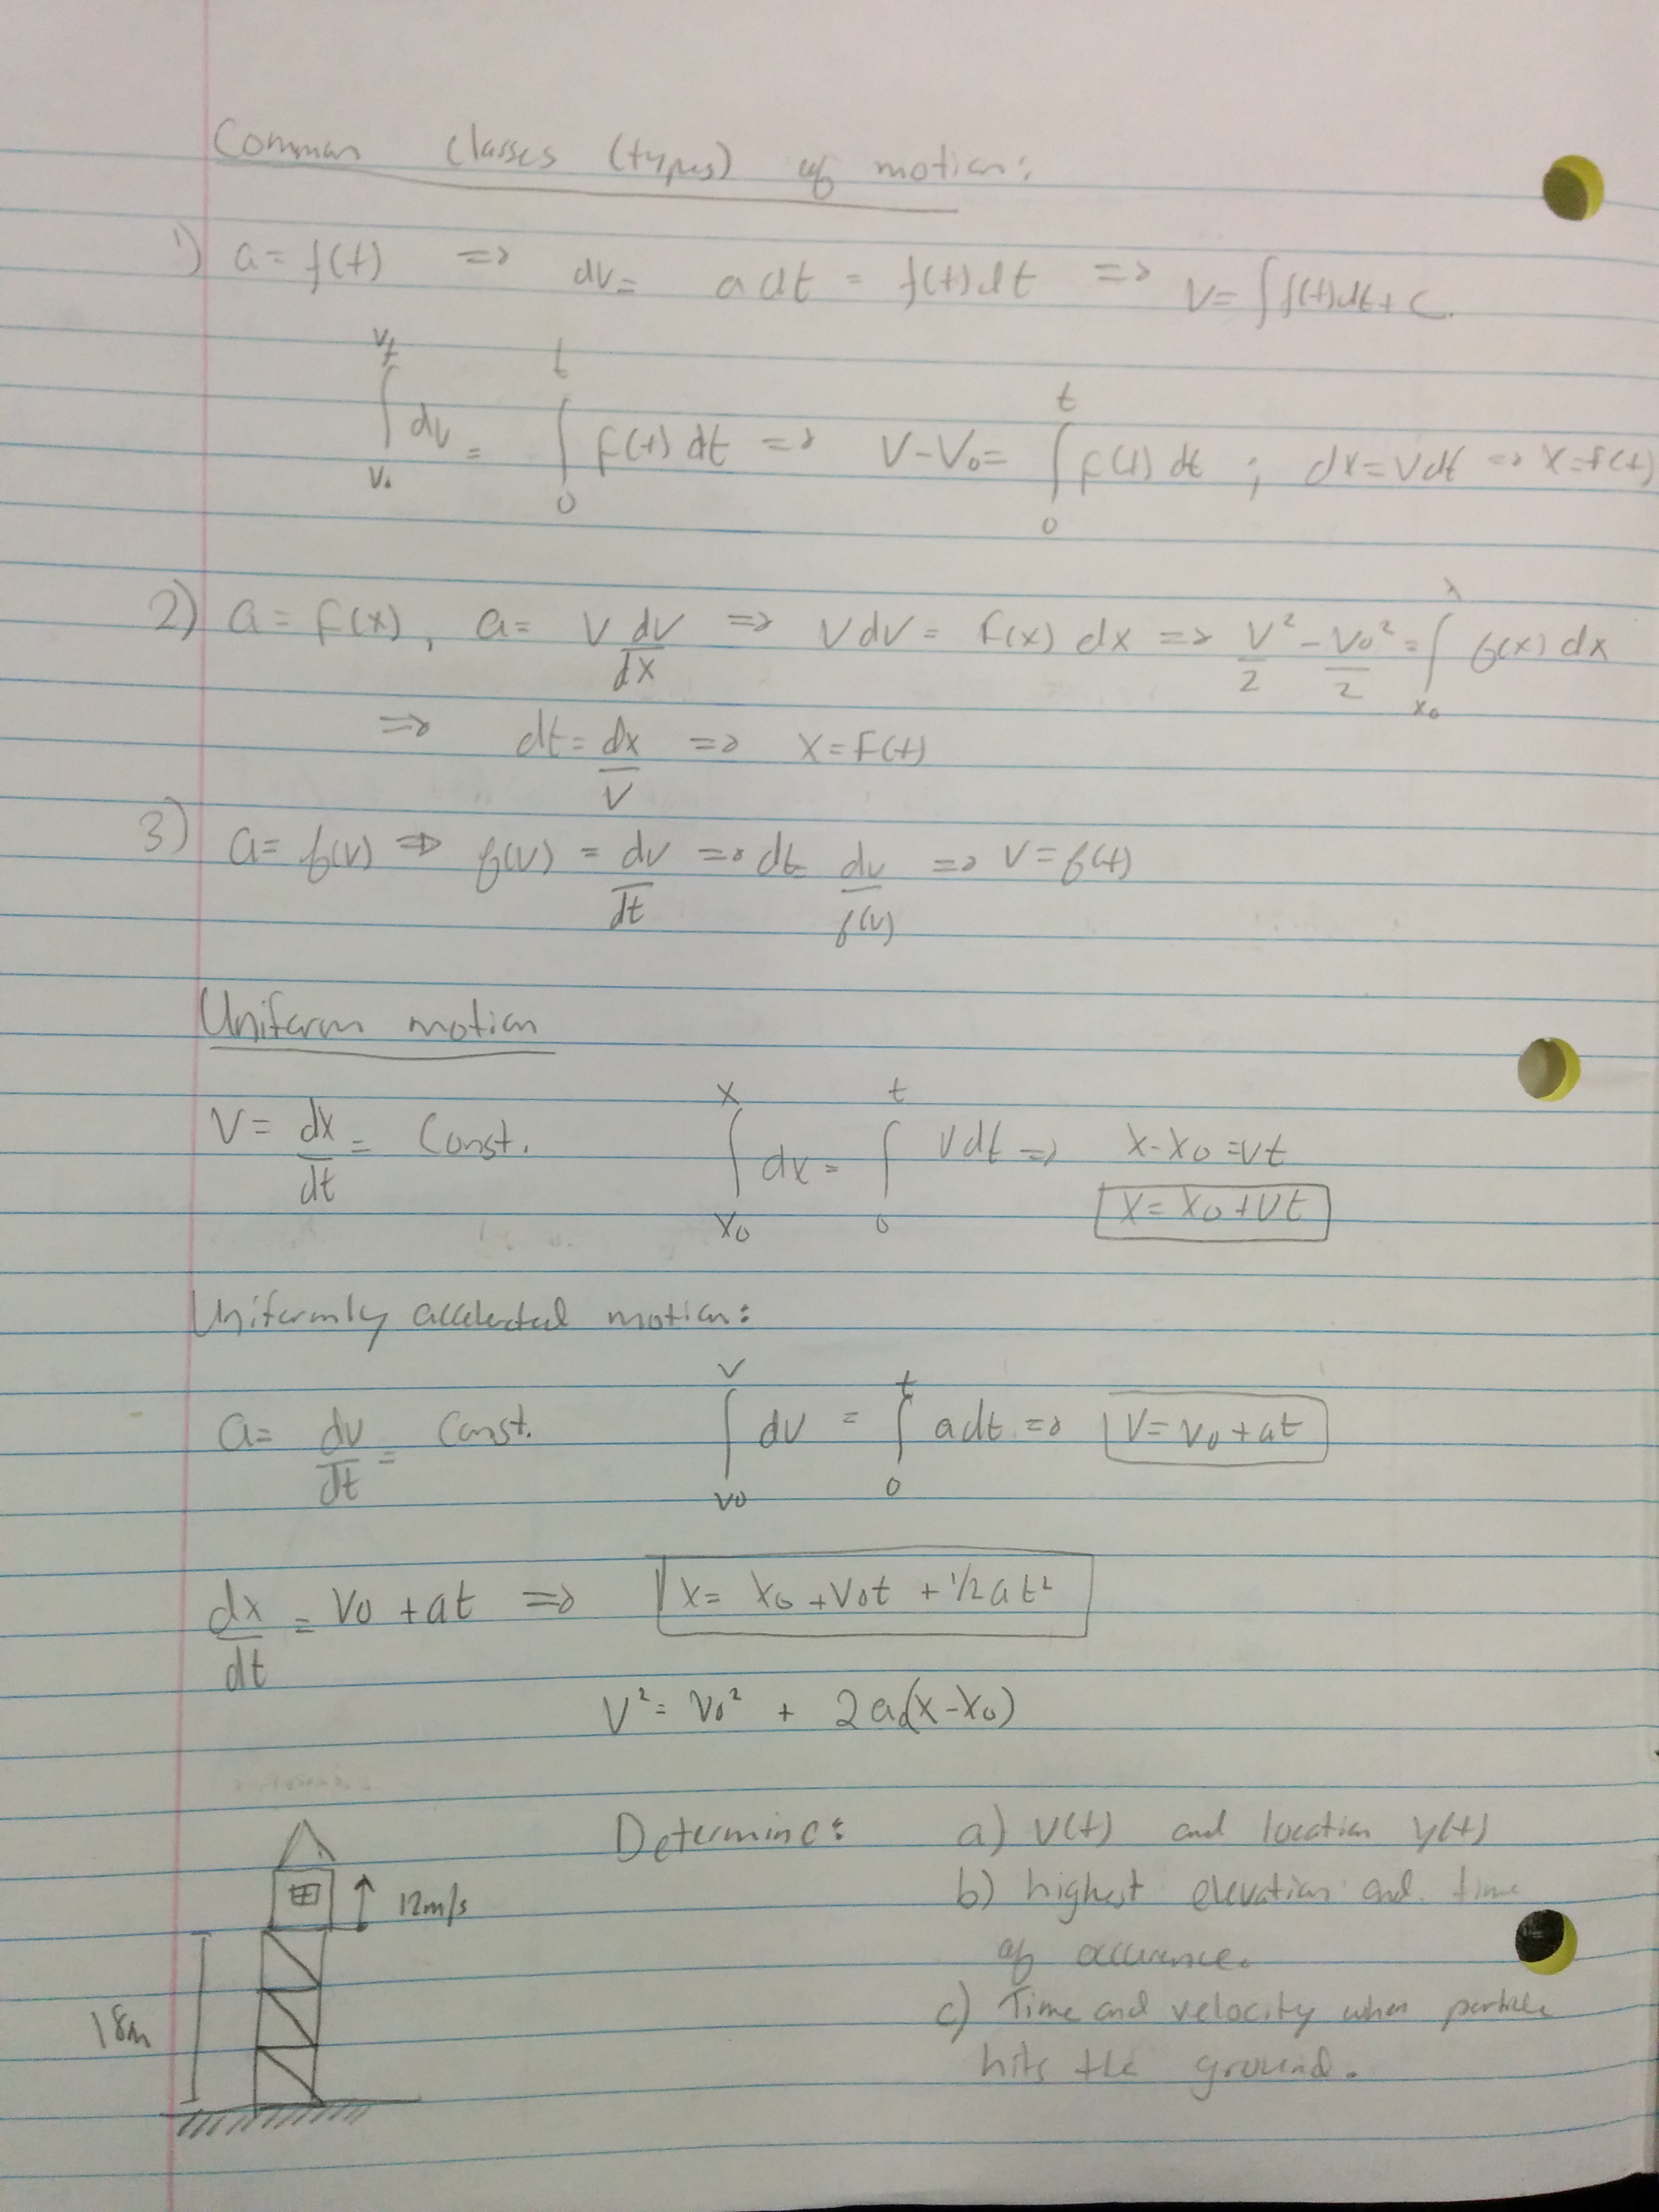 Common classes (types) of motion:
1) a = f(t) => dv = a dt = f(t)dt => V = ∫f(t)dt + C.
∫_{v₀}^{vf} dv = ∫_0^t f(t) dt => V-V₀ = ∫_0^t f(t) dt ; dx = Vdt => X = f(t)
2) a = f(x), a = V dv/dx => V dV = f(x) dx => V²/2 - V₀²/2 = ∫_{x₀}^x f(x) dx
=> dt = dx/V => X = F(t)
3) a = f(v) => f(v) = dv/dt => dt = dv/f(v) => V = f(t)
Uniform motion
V = dx/dt = Const. ∫_{x₀}^x dx = ∫_0^t Vdt => X-X₀ = vt
X = X₀ + vt
Uniformly accelected motion:
a = dv/dt = Const. ∫_{v₀}^v dv = ∫_0^t adt => V = V₀ + at
dx/dt = V₀ + at => X = X₀ + V₀t + 1/2 at²
V² = V₀² + 2a(x-x₀)
Determine: a) V(t) and location y(t)
12m/s b) highest elevation and time
of accurence.
18m c) Time and velocity when particle
hits the ground.